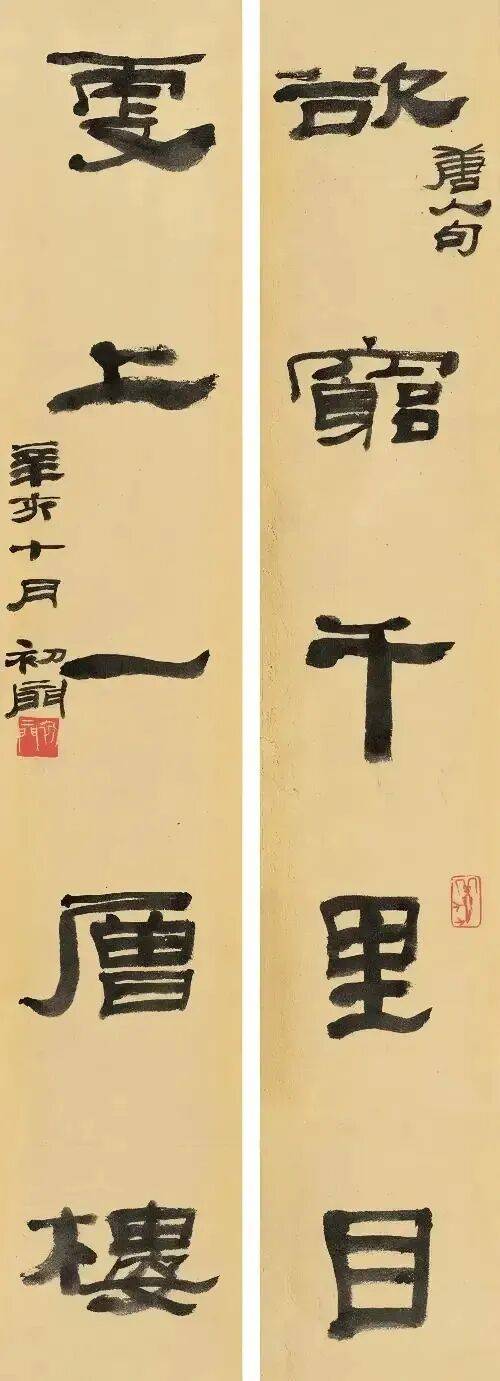 欲窮千里目
唐人句
更上一層樓
辛亥十月 初